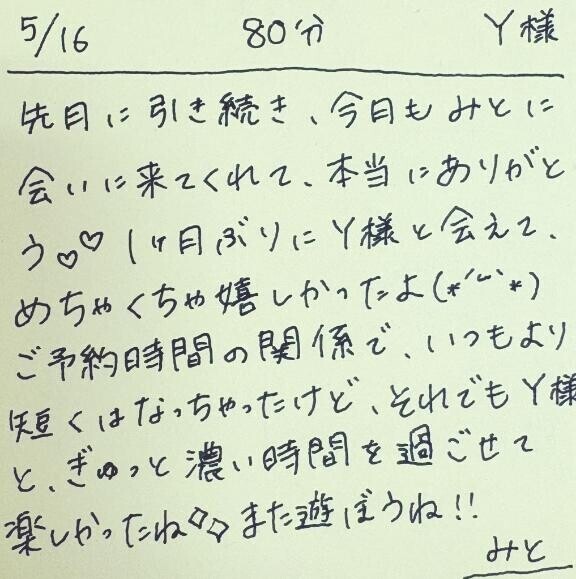 5/16 80分 Y様
先月に引き続き、今月もみとに
会いに来てくれて、本当にありがと
う♡♡ 1ヶ月ぶりにY様と会えて、
めちゃくちゃ嬉しかったよ(*´꒳`*)
ご予約時間の関係で、いつもより
短くはなっちゃったけど、それでもY様
と、ぎゅっと濃い時間を過ごせて
楽しかったね◇◇ また遊ぼうね!!
みと